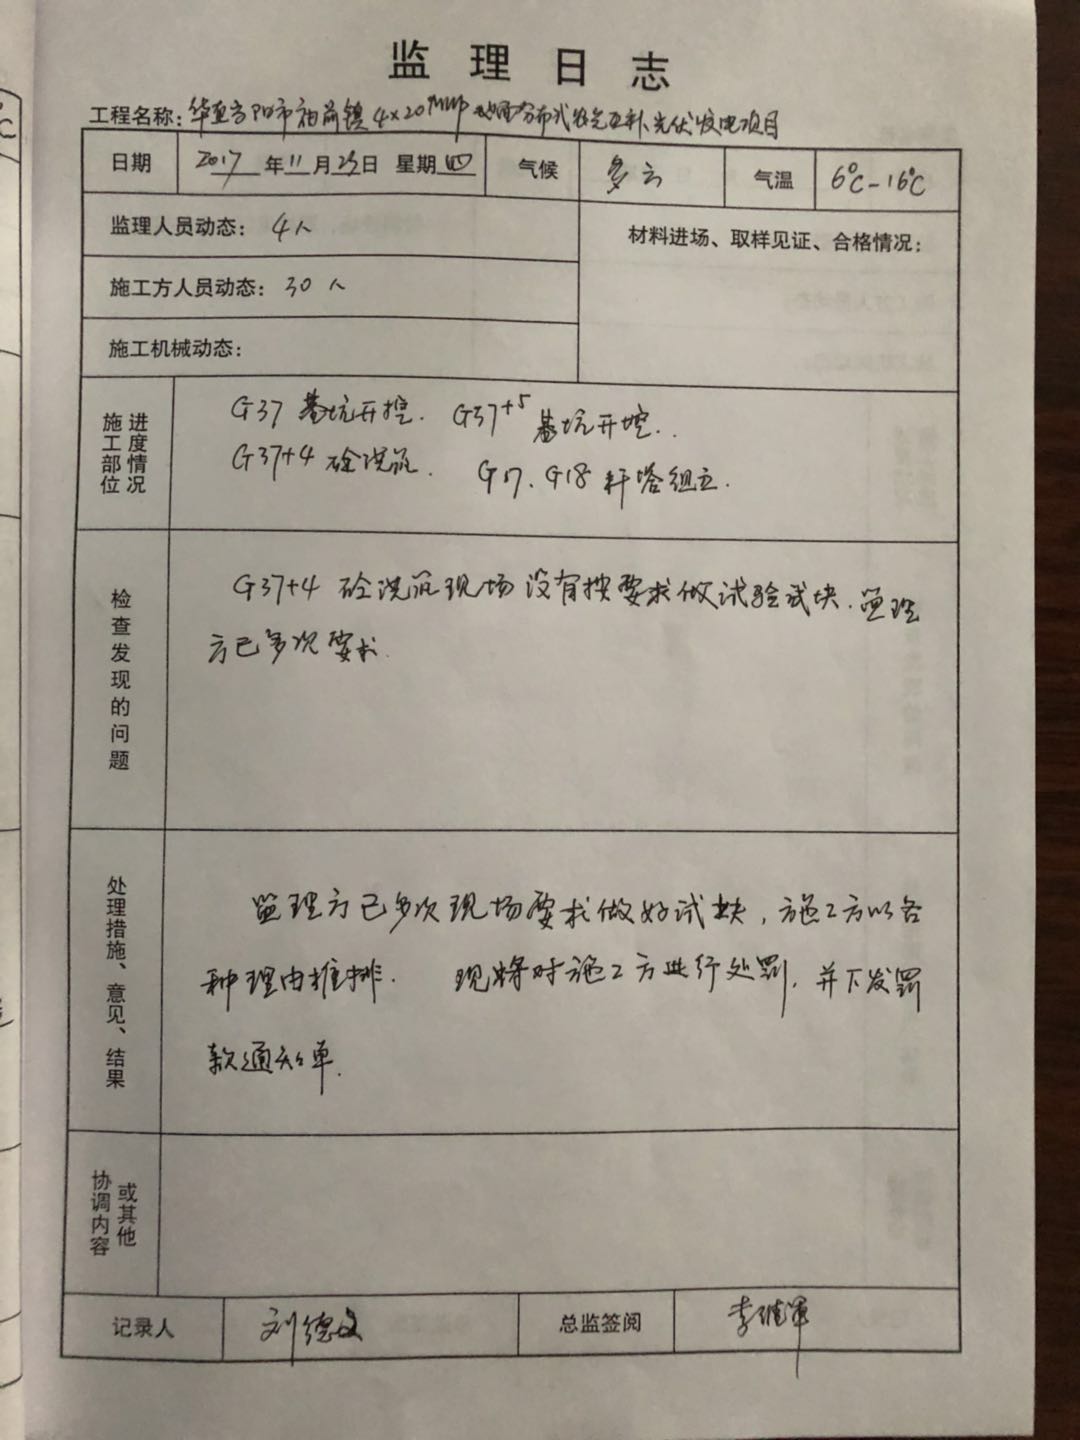 监理日志
工程名称：华亚高阳市袖前镇4×20MWp 分布式农光互补光伏发电项目
日期 2017年11月23日 星期四 气候 多云 气温 6℃-16℃
监理人员动态：4人
材料进场、取样见证、合格情况：
施工方人员动态：30人
施工机械动态：
施工部位
进度情况
G37 基坑开挖. G37+5 基坑开挖.
G37+4 砼浇筑. G17、G18杆塔组立.
检查发现的问题
G37+4 砼浇筑现场没有按要求做试验试块.监理
方已多次要求.
处理措施、意见、结果
监理方已多次现场要求做好试块，施工方以各
种理由推排. 现将对施工方进行处罚，并下发罚
款通知单.
协调内容
或其他
记录人 刘德文 总监签阅 李继军